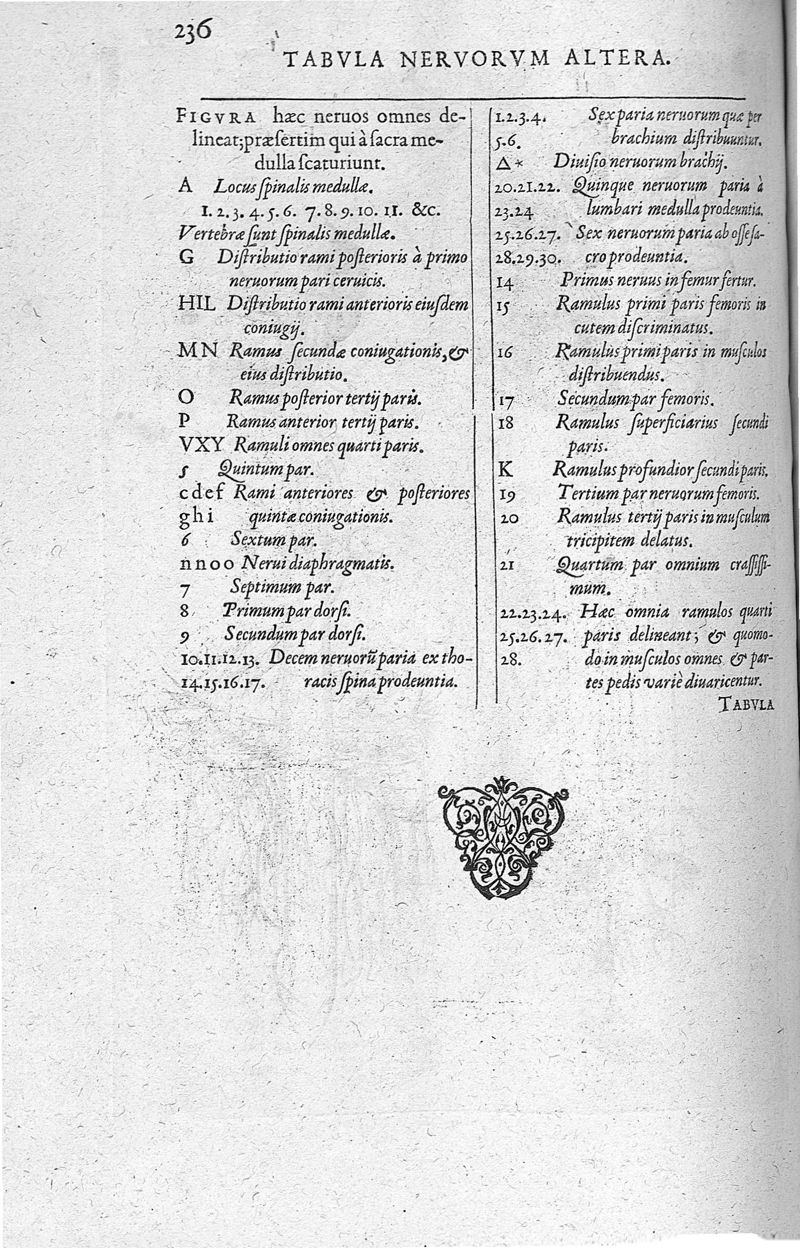 236
TABVLA NERVORVM ALTERA.
FIGVRA hæc neruos omnes de-
lineat; præsertim qui à sacra me-
dulla scaturiunt.
A Locus spinalis medullæ.
1. 2. 3. 4. 5. 6. 7. 8. 9. 10. 11. &c.
Vertebræ sunt spinalis medullæ.
G Distributio rami posterioris à primo
neruorum pari ceruicis.
HIL Distributio rami anterioris eiusdem
coniugij.
MN Ramus secundæ coniugationis, &
eius distributio.
O Ramus posterior tertij paris.
P Ramus anterior tertij paris.
VXY Ramuli omnes quarti paris.
5 Quintum par.
c d e f Rami anteriores & posteriores
g h i quintæ coniugationis.
6 Sextum par.
n n o o Nerui diaphragmatis.
7 Septimum par.
8 Primum par dorsi.
9 Secundum par dorsi.
10.11.12.13. Decem neruorũ paria ex tho-
14.15.16.17. racis spina prodeuntia.
1.2.3.4. Sex paria neruorum quæ per
5.6. brachium distribuuntur.
Δ* Diuisio neruorum brachij.
20.21.22. Quinque neruorum paria à
23.24 lumbari medulla prodeuntia.
25.26.27. Sex neruorum paria ab osse sa-
28.29.30. cro prodeuntia.
14 Primus neruus in femur fertur.
15 Ramulus primi paris femoris in
cutem discriminatus.
16 Ramulus primi paris in musculos
distribuendus.
17 Secundum par femoris.
18 Ramulus superficiarius secundi
paris.
K Ramulus profundior secundi paris.
19 Tertium par neruorum femoris.
20 Ramulus tertij paris in musculum
tricipitem delatus.
21 Quartum par omnium crassissi-
mum.
22.23.24. Hæc omnia ramulos quarti
25.26.27. paris delineant; & quomo-
28. do in musculos omnes & par-
tes pedis variè diuaricentur.
TABVLA